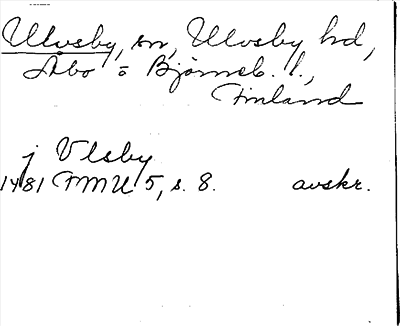 Ulvsby, sn, Ulvsby hd,
Åbo o Björneb. l.,
Finland
j Vlsby
1481 FMU 5, s. 8. avskr.